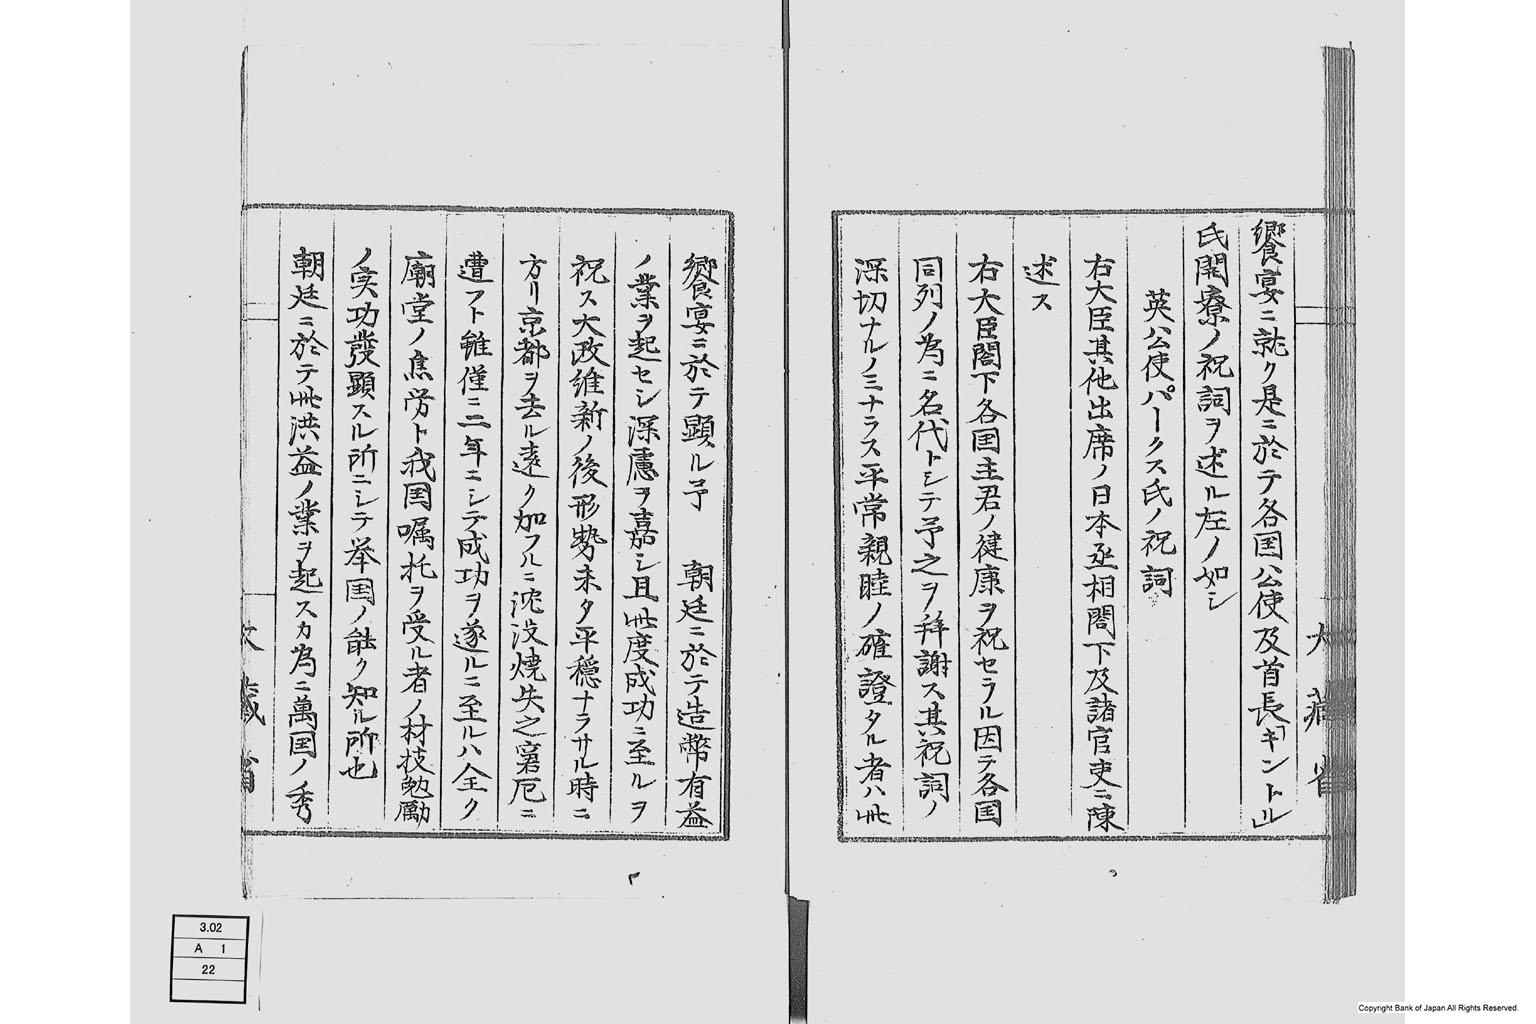 饗宴ニ就ク是ニ於テ各国公使及首長「キントル」
氏開寮ノ祝詞ヲ述ル左ノ如シ
英公使パークス氏ノ祝詞
右大臣其他出席ノ日本丞相閣下及諸官吏ニ陳
述ス
右大臣閣下各国主君ノ健康ヲ祝セラル因テ各国
同列ノ為ニ名代トシテ予之ヲ拜謝ス其祝詞ノ
深切ナルノミナラス平常親睦ノ確證タル者ハ此
大藏省
饗宴ニ於テ顕ル予 朝廷ニ於テ造幣有益
ノ業ヲ起セシ深慮ヲ嘉シ且此度成功ニ至ルヲ
祝ス大政維新ノ後形勢未タ平穏ナラサル時ニ
方リ京都ヲ去ル遠ク加フルニ沈没焼失之窘厄ニ
遭フト雖僅ニ二年ニシテ成功ヲ遂ルニ至ルハ全ク
廟堂ノ焦労ト我国嘱托ヲ受ル者ノ材技勉勵
ノ実功發顕スル所ニシテ挙国ノ能ク知ル所也
朝廷ニ於テ此洪益ノ業ヲ起スカ為ニ萬国ノ秀
大藏省
3.02
A 1
22
Copyright Bank of Japan All Rights Reserved.